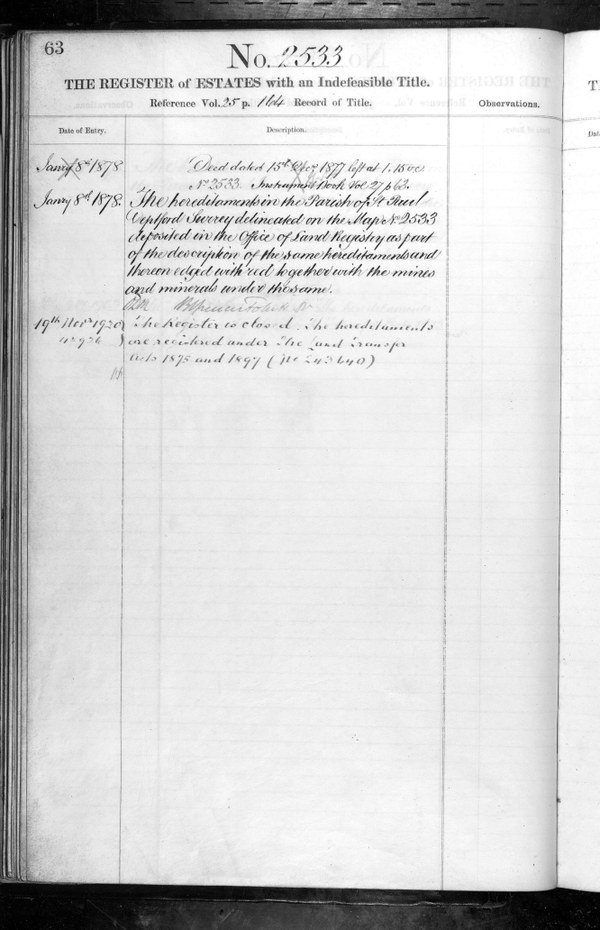 63
No. 2533
THE REGISTER of ESTATES with an Indefeasible Title.
Reference Vol. 25 p. 164 Record of Title.
Observations.
Date of Entry.
Description.
Jany 8th 1878
Deed dated 15th Decr 1877 left at 1.15 o'c.
No 2533. Instrument Book Vol 27 p 63.
Jany 8th 1878.
The hereditaments in the Parish of St Paul
Deptford Surrey delineated on the Map No 2533
deposited in the Office of Land Registry as part
of the description of the same hereditaments and
thereon edged with red together with the mines
and minerals under the same.
19th Novr 1920
The Register is closed. The hereditaments
are registered under The Land Transfer
Acts 1875 and 1897 (No 243640)